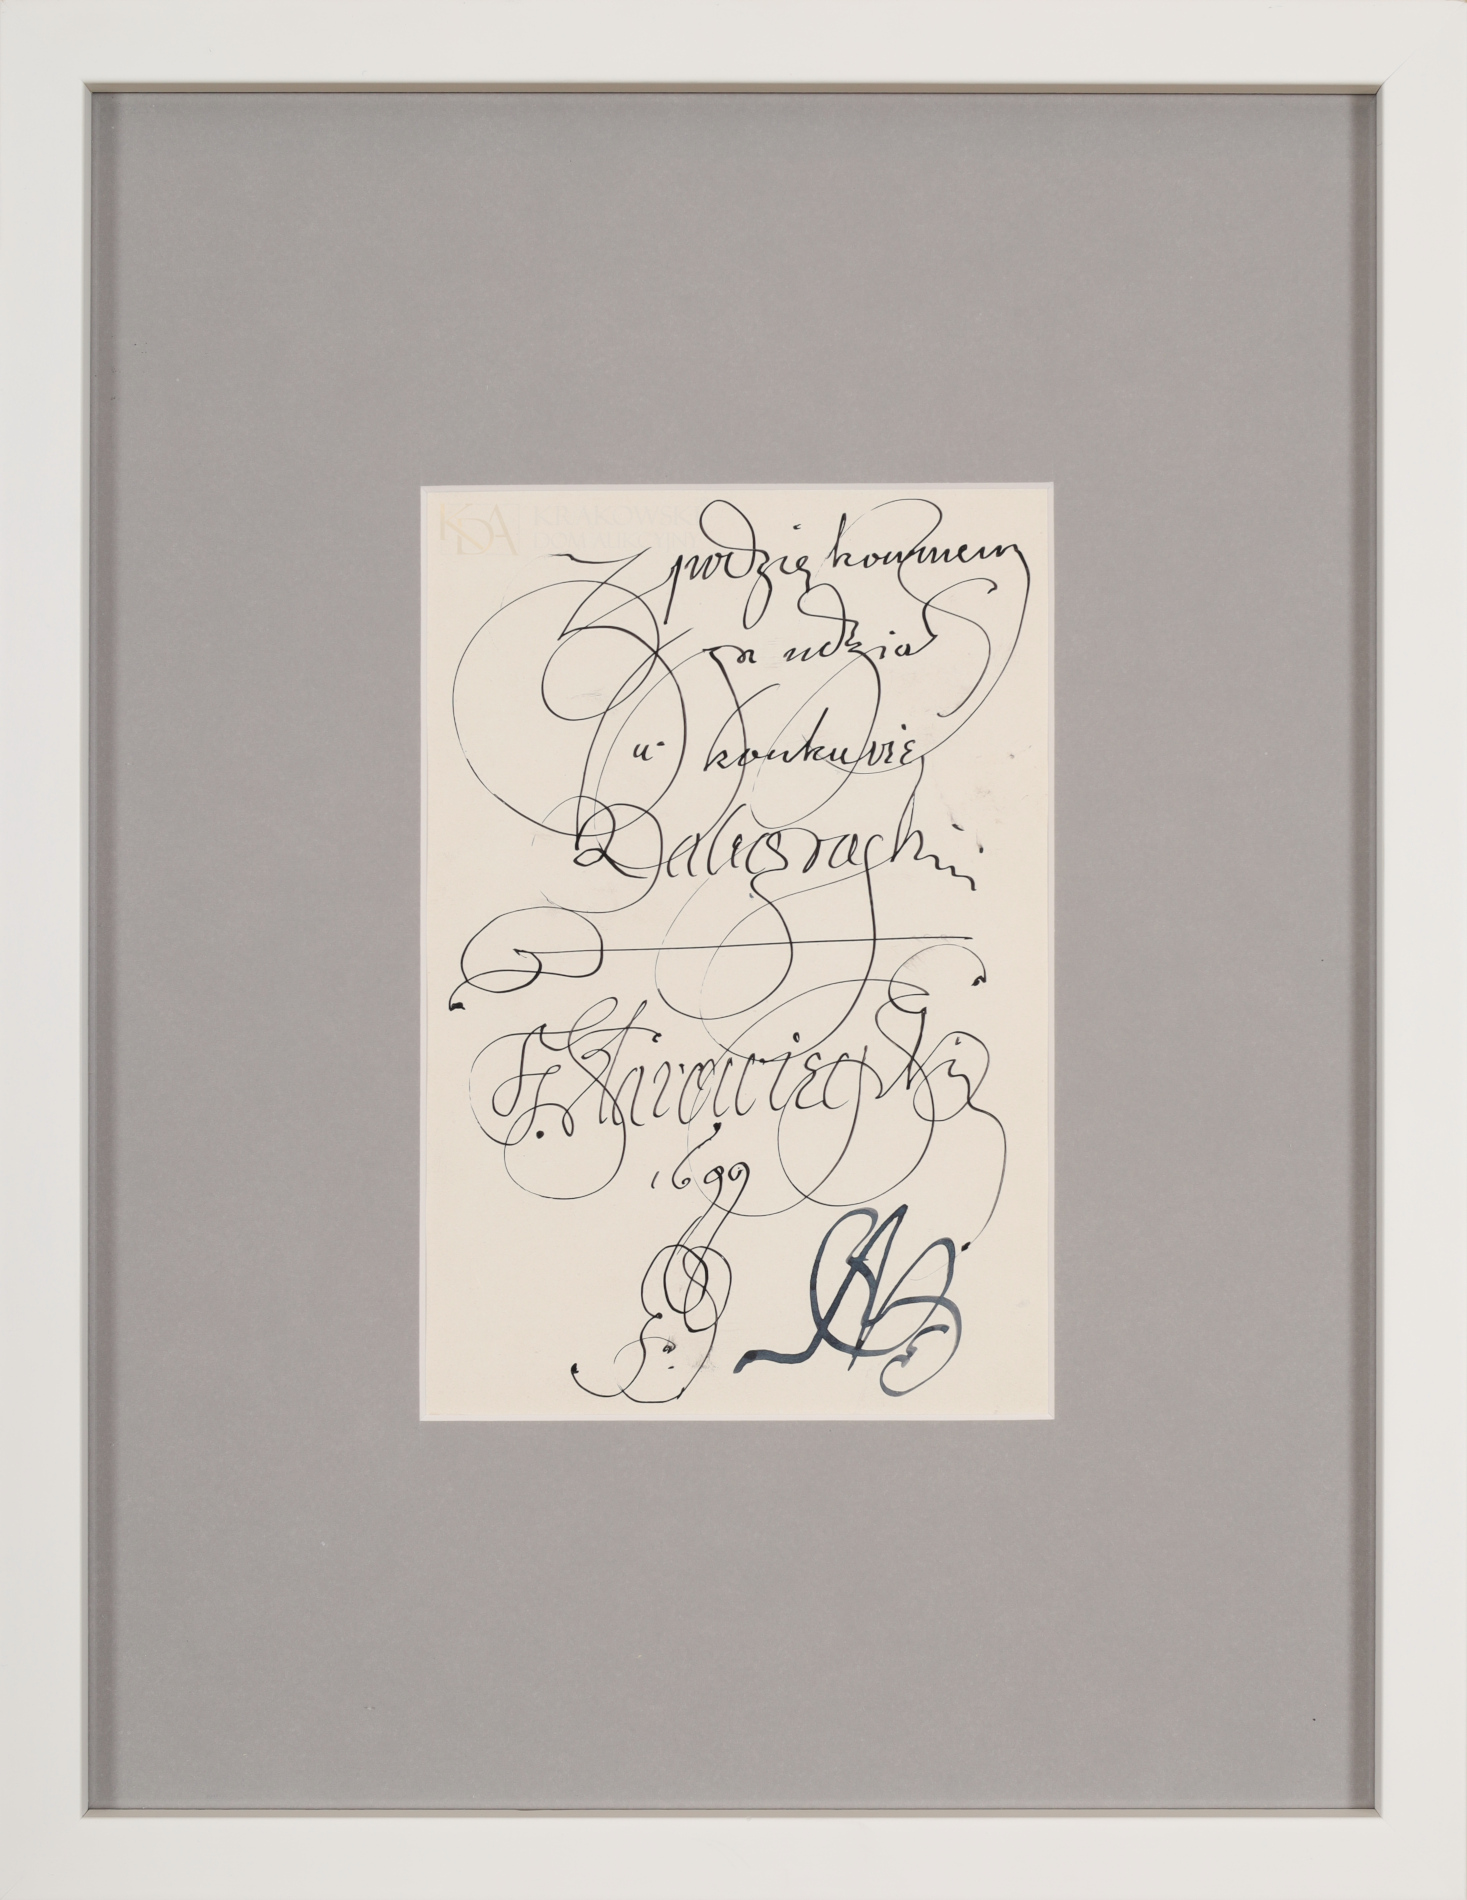 KDA KRAKOWSKI
DOM AUKCYJNY
Z podziękowaniem
za udział
w konkursie
Kaligraficznym
F. Starowieyski
1699